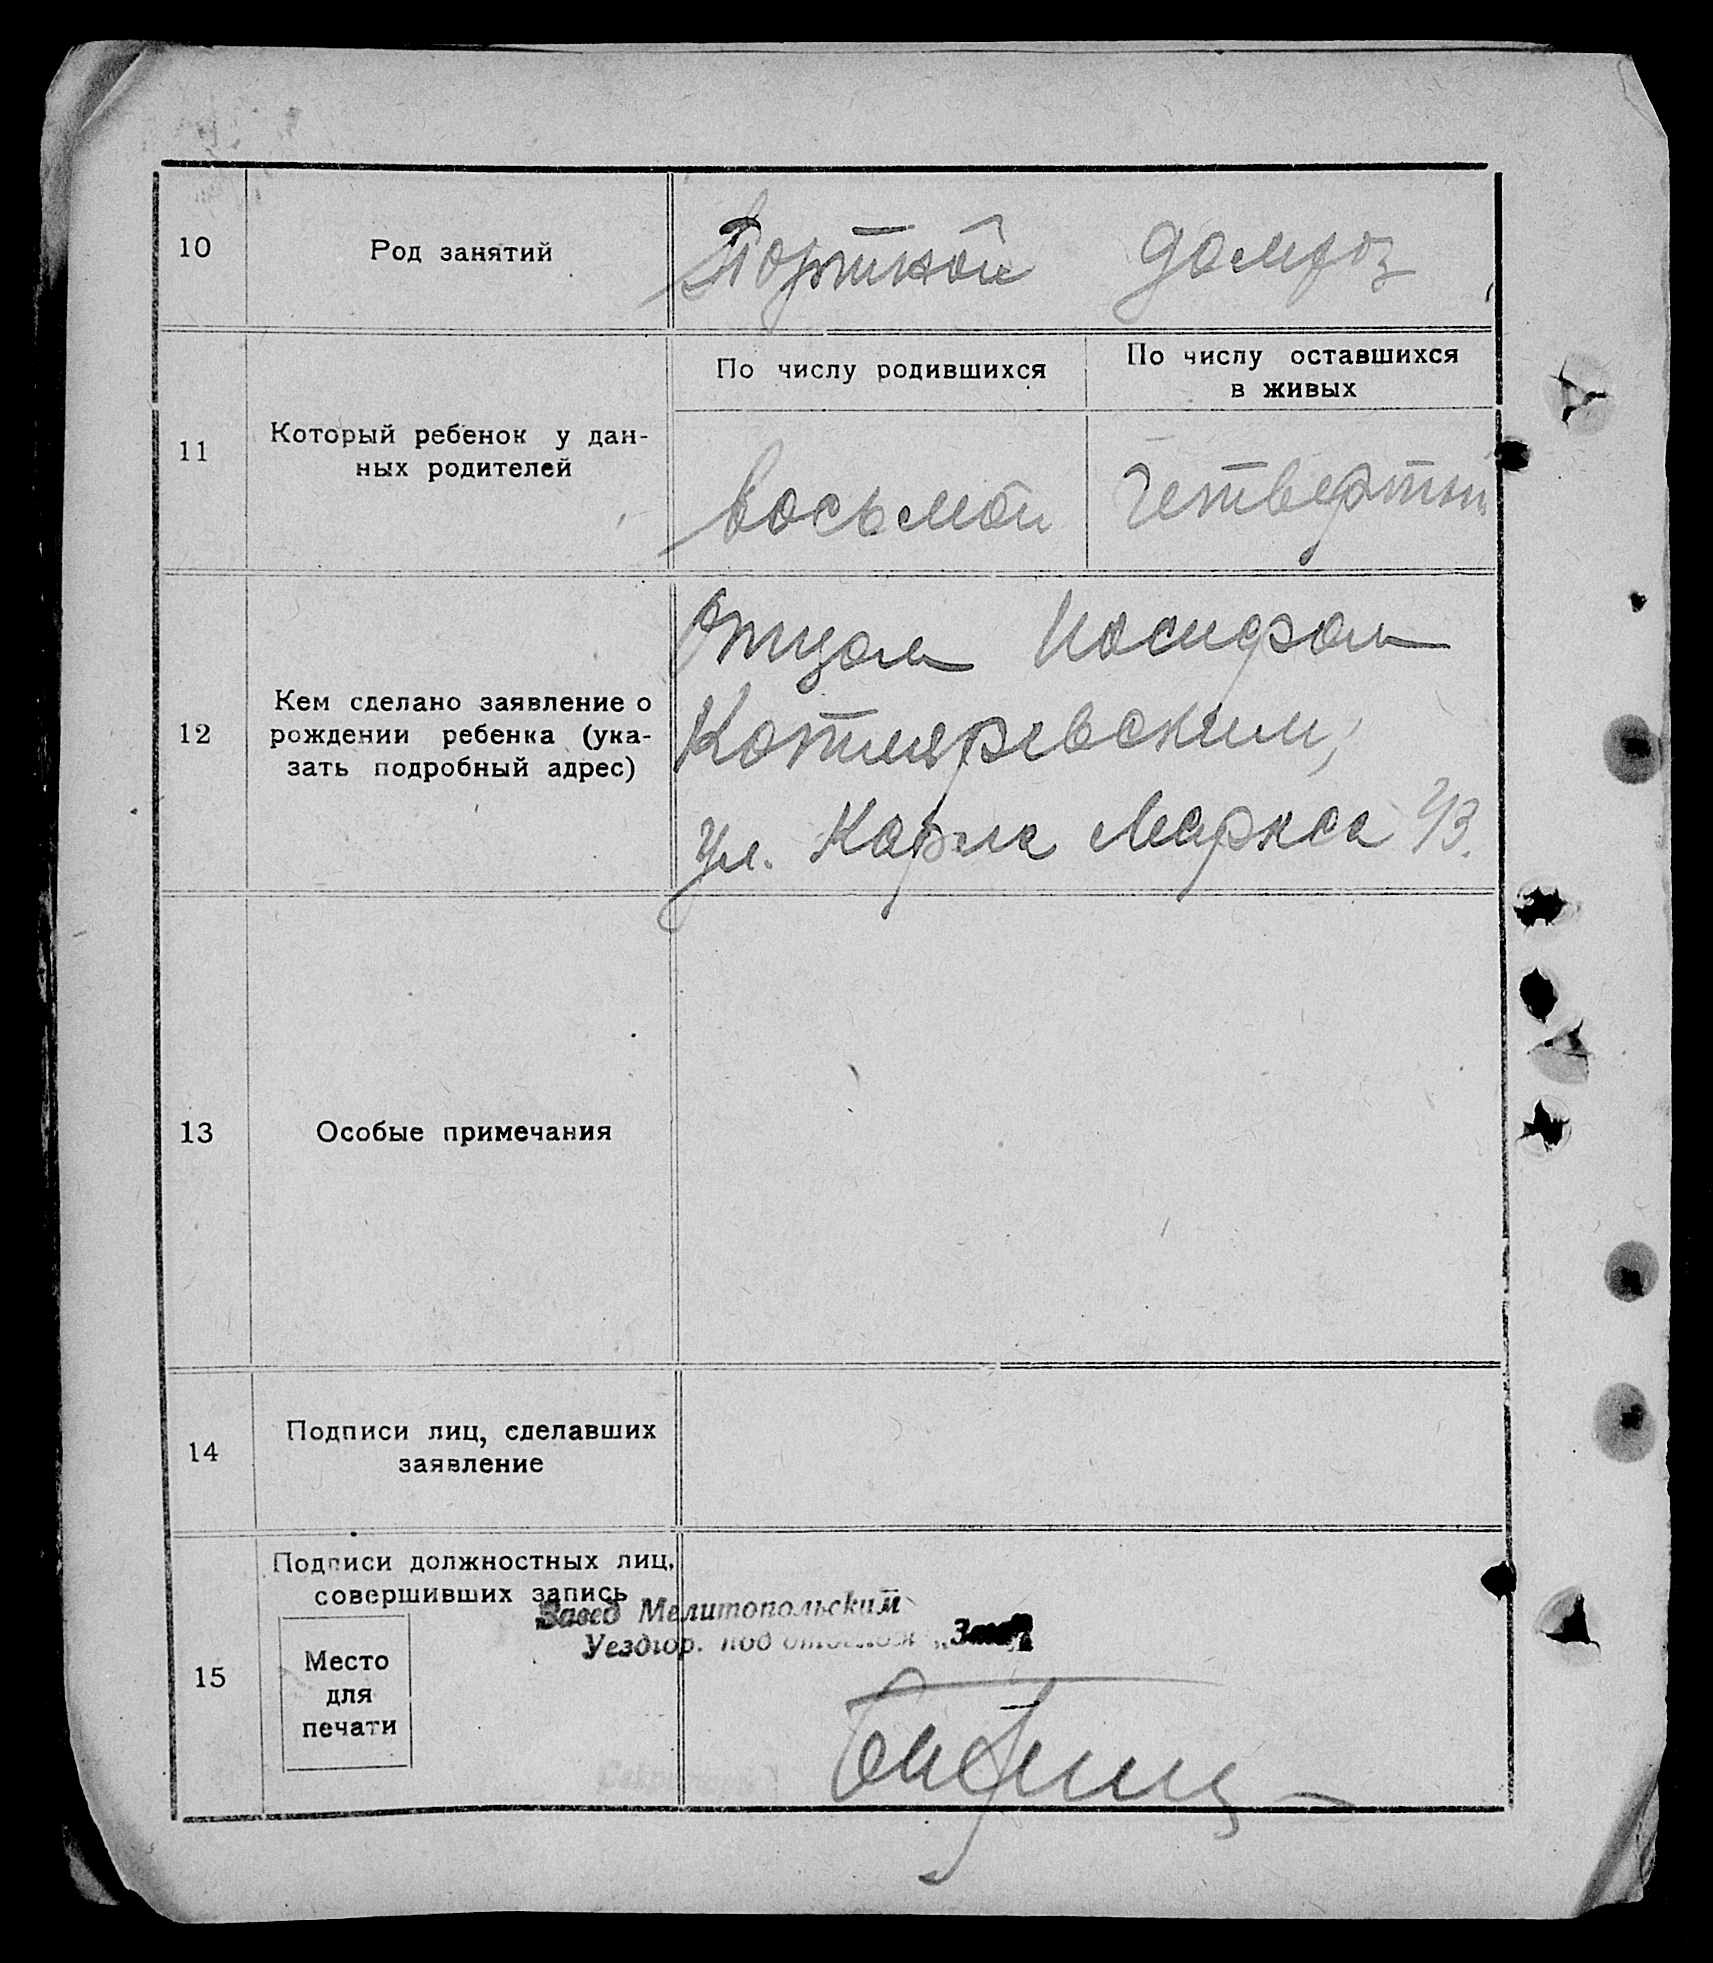 10
Род занятий
Портной
домхоз
11
Который ребенок у дан-
ных родителей
По числу родившихся
По числу оставшихся
в живых
восьмой
Четвертый
12
Кем сделано заявление о
рождении ребенка (ука-
зать подробный адрес)
Отцом Иосифом
Котляревским,
ул. Карла Маркса 43.
13
Особые примечания
14
Подписи лиц, сделавших
заявление
15
Подписи должностных лиц,
совершивших запись
Завед Мелитопольским
Уездгор. под отделом „Загс"
Место
для
печати